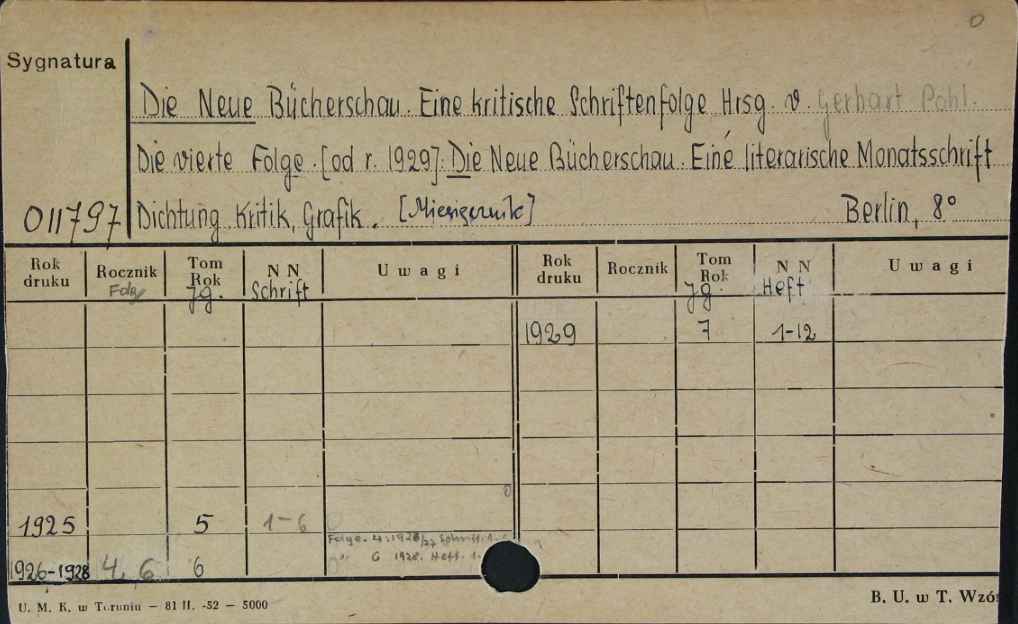 0
Sygnatura
Die Neue Bücherschau. Eine kritische Schriftenfolge Hrsg. v. Gerhart Pohl.
Die vierte Folge. [od r. 1929]: Die Neue Bücherschau. Eine literarische Monatsschrift
011797 Dichtung, Kritik, Grafik. [Miesięcznik] Berlin, 8°
Rok druku Rocznik Tom Rok N N Uwagi Rok druku Rocznik Tom Rok N N Uwagi
Folge Jg. Schrift Jg. Heft
1929 7 1-12
1925 5 1-6
Folge. 4: 1926/27 Schrift. 1-
1926-1928 4, 6 6
6 1928. Heft. 1.
U. M. K. w Toruniu – 81 II. -52 – 5000
B. U. w T. Wzór